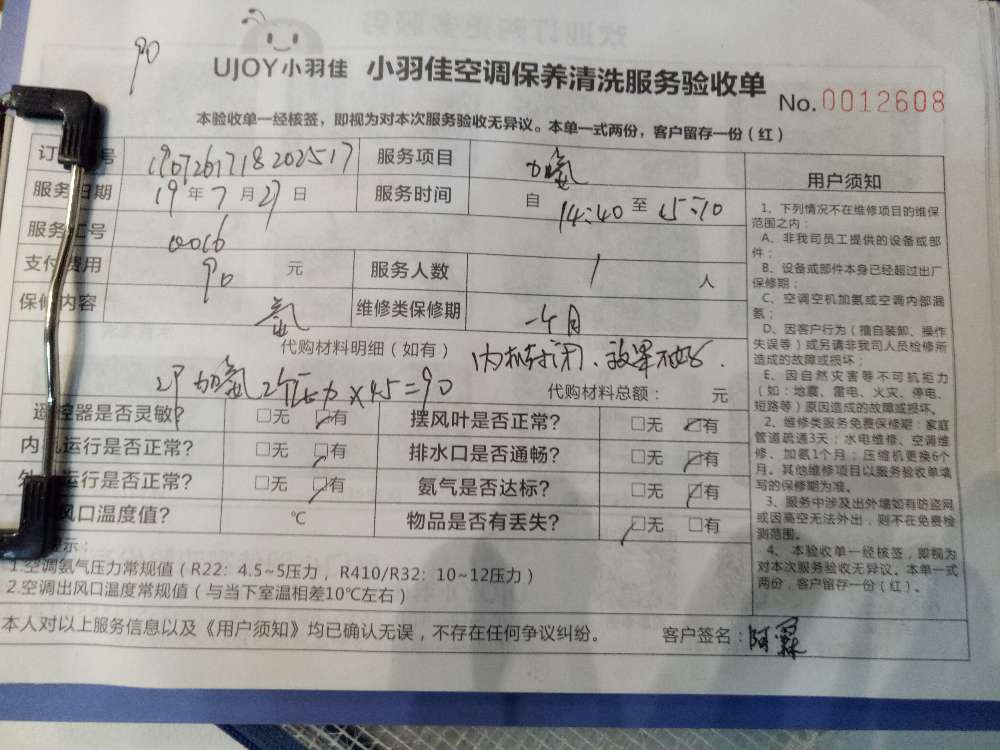 90
UJOY小羽佳 小羽佳空调保养清洗服务验收单
No.0012608
本验收单一经核签，即视为对本次服务验收无异议。本单一式两份，客户留存一份（红）
订 号 1907261718202517 服务项目 加氟
服务日期 19年7月27日 服务时间 自 14:40 至 15:10
服务 号 0016
支付费用 90 元 服务人数 1 人
保修内容 氟 维修类保修期 一个月
代购材料明细（如有） 内机封闭、效果不好.
2P加氟2个压力×45=90 代购材料总额： 元
遥控器是否灵敏? □无 □有 摆风叶是否正常? □无 □有
内 运行是否正常? □无 □有 排水口是否通畅? □无 □有
外 运行是否正常? □无 □有 氨气是否达标? □无 □有
风口温度值? ℃ 物品是否有丢失? □无 □有
示：
1.空调氨气压力常规值（R22：4.5~5压力，R410/R32：10~12压力）
2.空调出风口温度常规值（与当下室温相差10℃左右）
本人对以上服务信息以及《用户须知》均已确认无误，不存在任何争议纠纷。 客户签名：阿霖
用户须知
1、下列情况不在维修项目的维保
范围之内：
A、非我司员工提供的设备或部
件；
B、设备或部件本身已经超过出厂
保修期；
C、空调空机加氨或空调内部漏
氨；
D、因客户行为（擅自装卸、操作
失误等）或另请非我司人员检修所
造成的故障或损坏；
E、因自然灾害等不可机拒力
（如：地震、雷电、火灾、停电、
短路等）原因造成的故障或损坏。
2、维修类服务免费保修期：家庭
管道疏通3天；水电维修、空调维
修、加氨1个月；压缩机更换6个
月。其他维修项目以服务验收单填
写的保修期为准。
3、服务中涉及出外墙如有防盗网
或因高空无法外出，则不在免费检
测范围。
4、本验收单一经核签，即视为
对本次服务验收无异议。本单一式
两份，客户留存一份（红）。